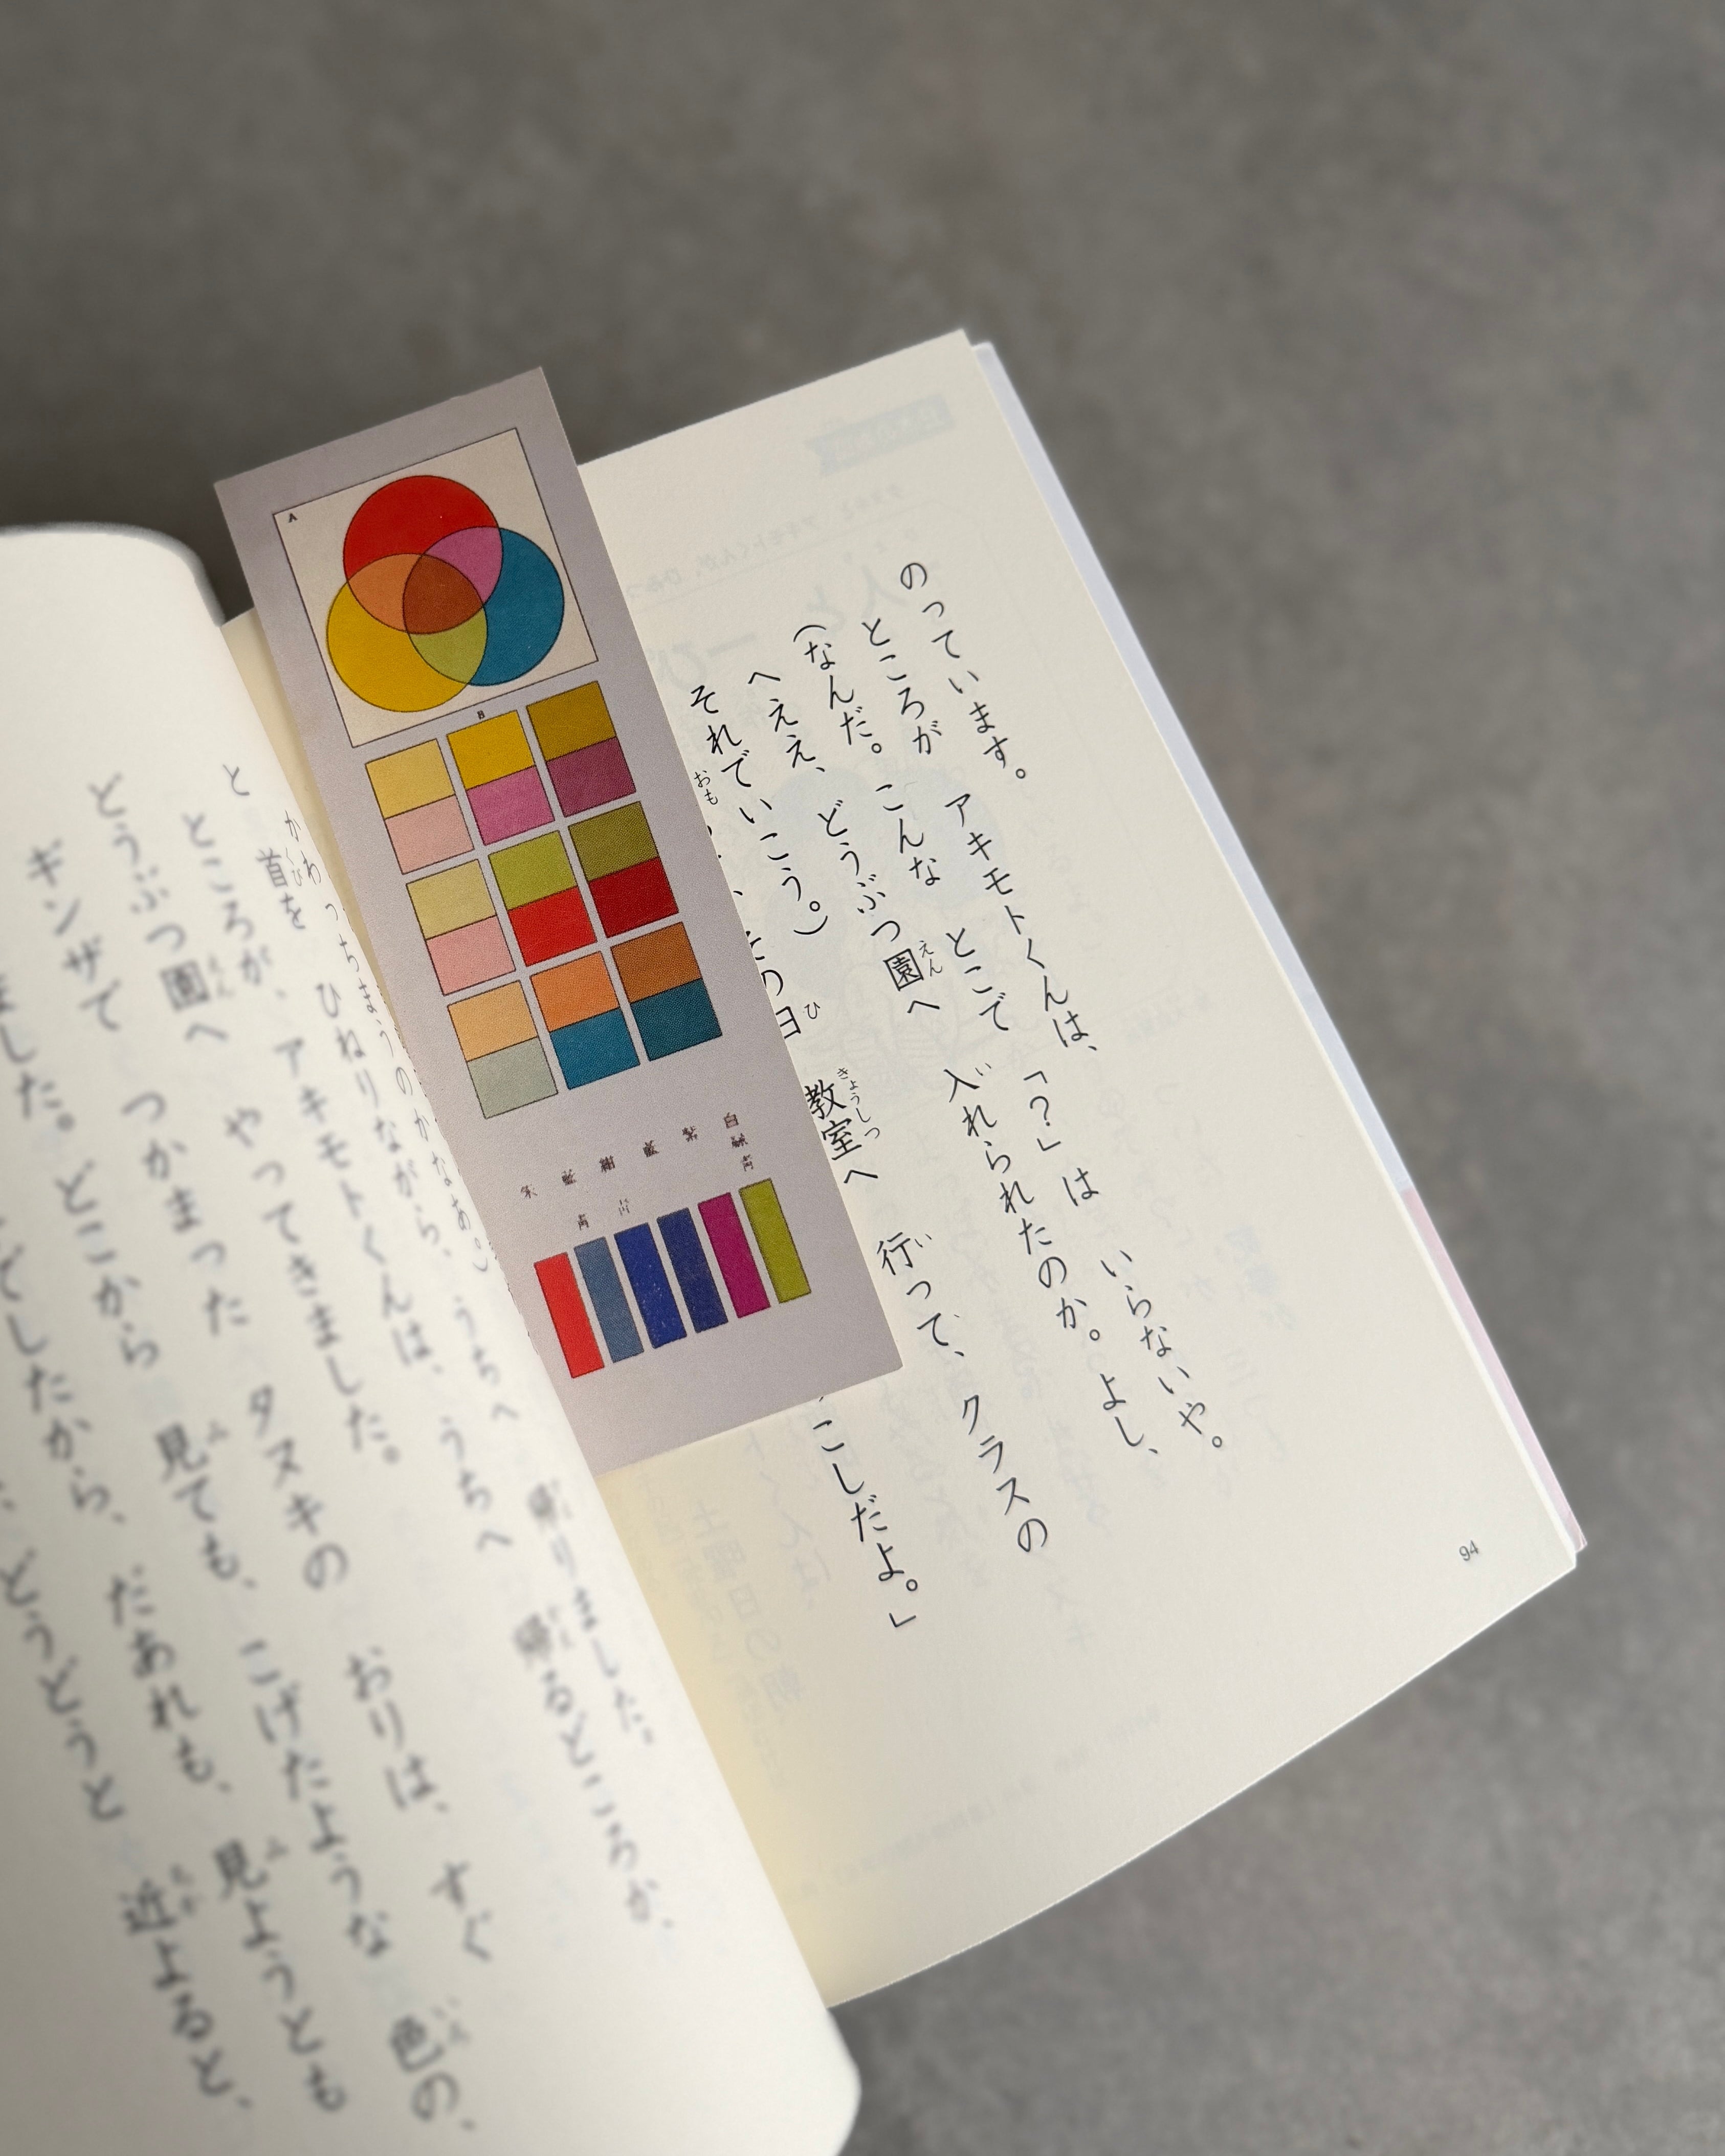 のっています。
ところが アキモトくんは、「?」は いらないや。
（なんだ。こんな とこで 入れられたのか。よし、
へええ、どうぶつ園へ
それでいこう。）
その日 教室へ 行って、クラスの
こしだよ。」
94
A
B
かわっちまうのかなあ。）
と 首を ひねりながら、うちへ 帰りました。
ところが、アキモトくんは、うちへ 帰るどころか、
どうぶつ園へ やってきました。
ギンザで つかまった タヌキの おりは、すぐ
ました。どこから 見ても、こげたような 色の、
でしたから、だあれも、見ようとも
どうどうと 近よると、